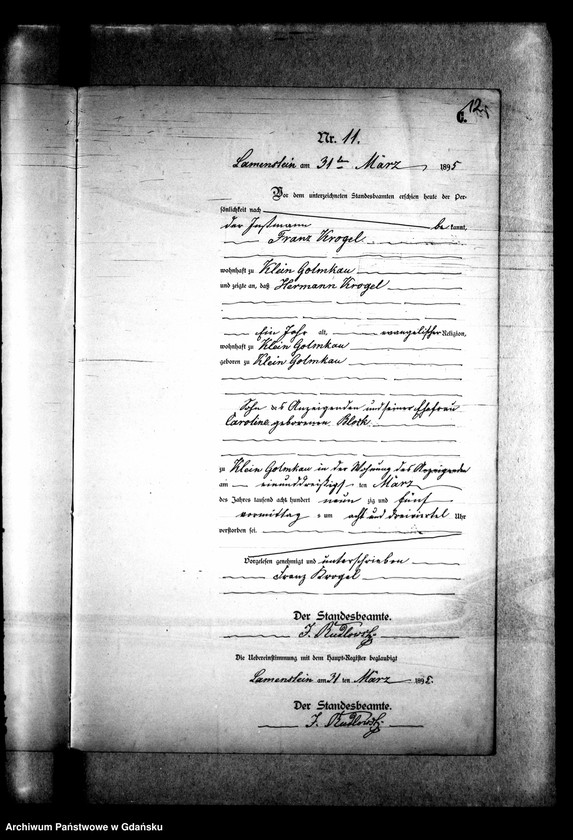 C.
12
Nr. 11.
Lamenstein am 31ten März 1895
Vor dem unterzeichneten Standesbeamten erschien heute, der Per-
sönlichkeit nach
der Instmann bekannt,
Franz Krogel
wohnhaft zu Klein Golmkau
und zeigte an, daß Hermann Krogel
ein Jahr alt, evangelischer Religion,
wohnhaft zu Klein Golmkau
geboren zu Klein Golmkau
Sohn des Anzeigenden und seiner Ehefrau
Caroline geborenen Block
zu Klein Golmkau in der Wohnung des Anzeigenden
am einunddreißigsten März
des Jahres tausend acht hundert neunzig und fünf
vormittags um acht und dreiviertel Uhr
verstorben sei.
Vorgelesen genehmigt und unterschrieben
Franz Krogel
Der Standesbeamte.
Die Uebereinstimmung mit dem Haupt-Register beglaubigt
Lamenstein am 31ten März 1895.
Der Standesbeamte.
Archiwum Państwowe w Gdańsku